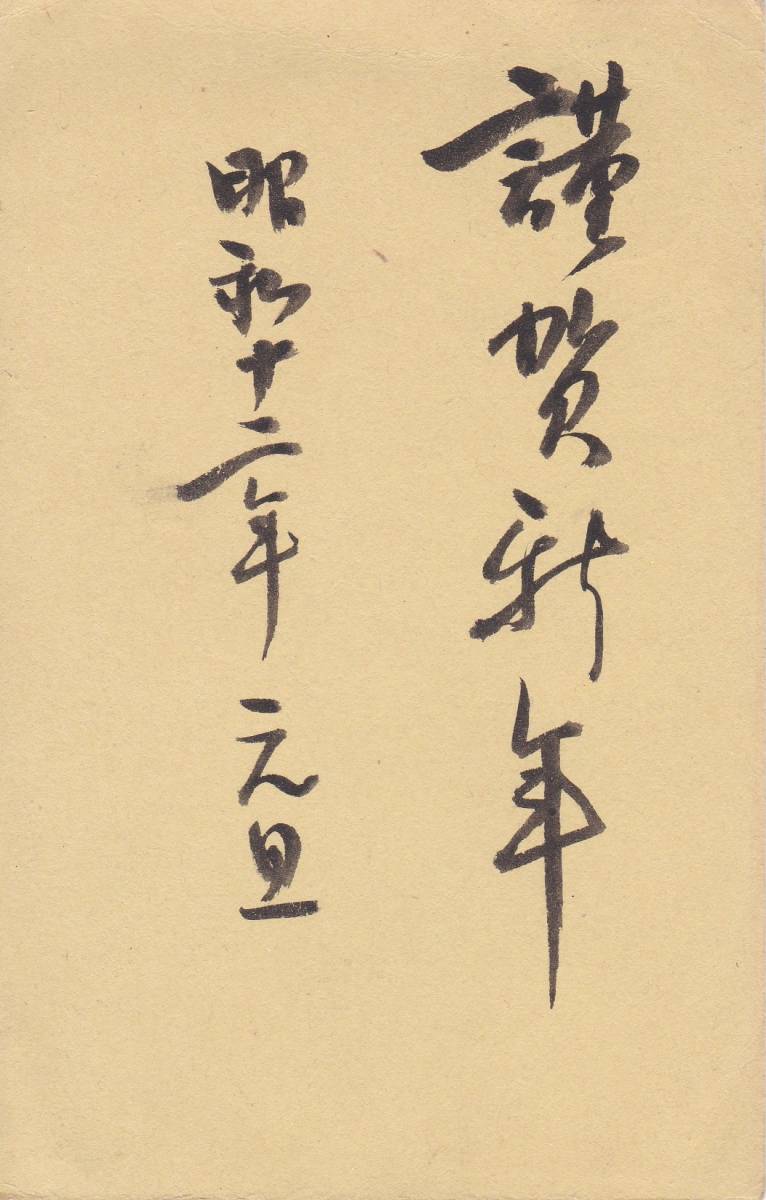 謹賀新年
昭和十二年 元旦